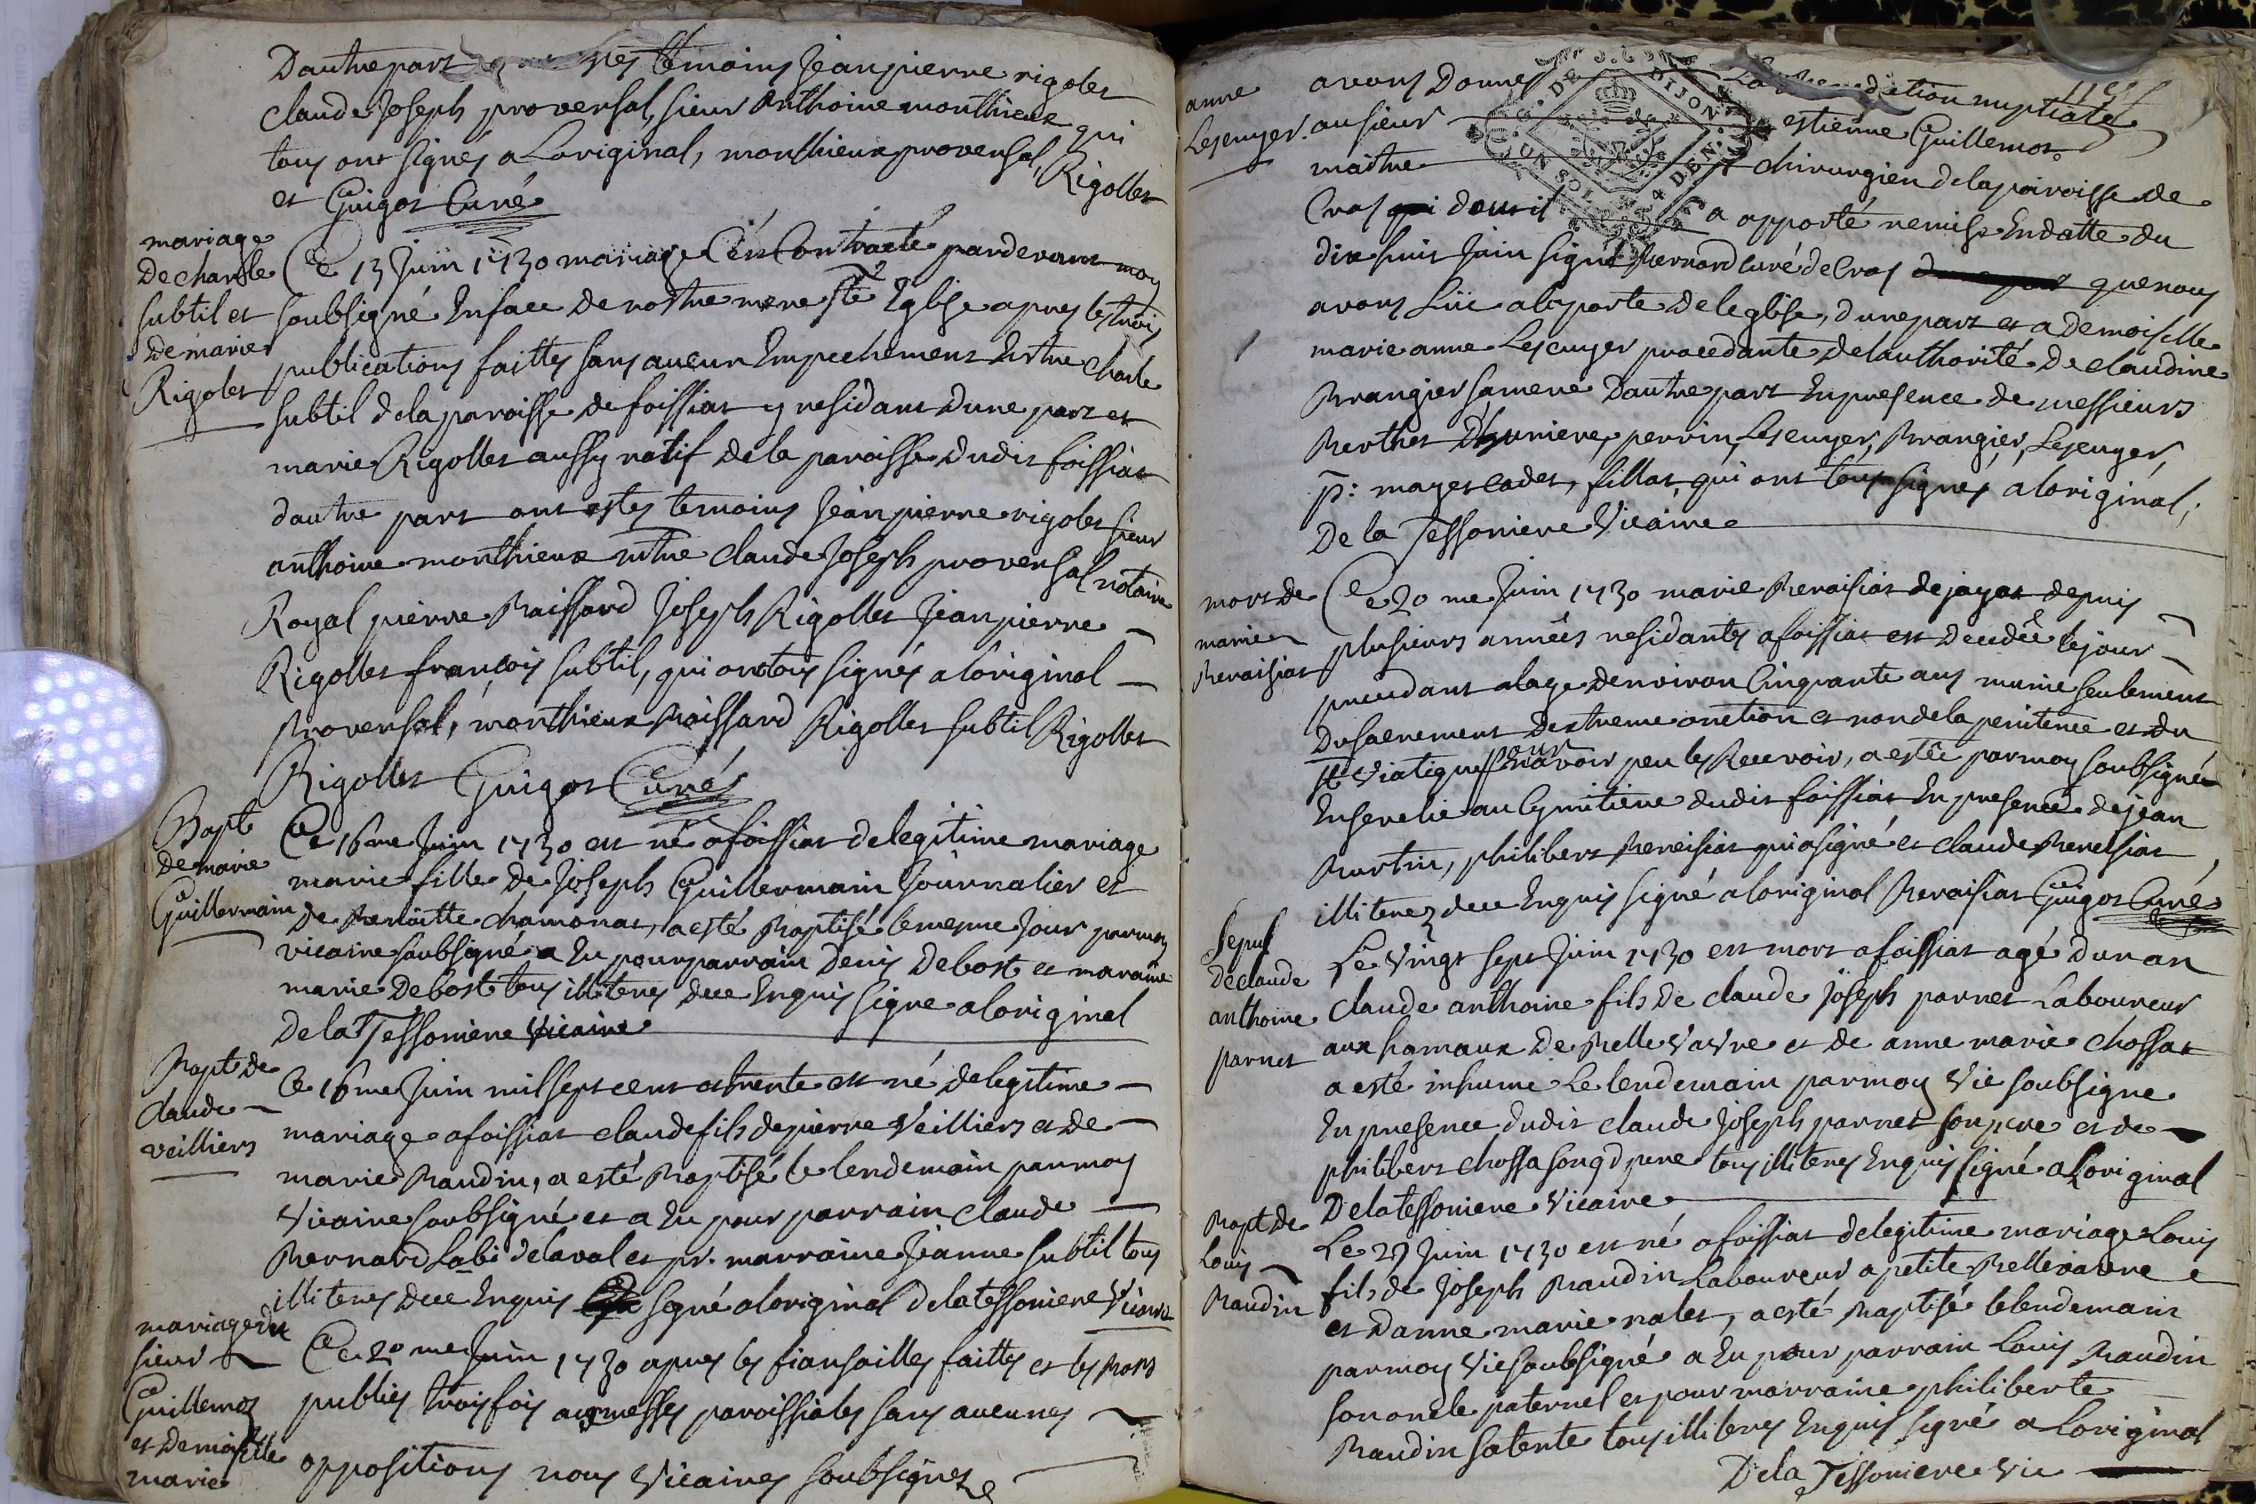 Dautre part les temoins Jean pierre rigolet
claude Joseph provensal, sieur Anthoine monthieux qui
tous ont signés a Loriginal, monthieux provensal, Rigollet
et Guigot Curé
mariage
De charle
subtil et
De marie
Rigolet
Ce 13 Juin 1730 mariage s'est Contracté pardevant moy
soubsigné En face de nostre mere ste Eglise apres les trois
publications faittes sans aucun Empechement Entre charle
subtil de la paroisse de foissiat y residant Dune part et
marie Rigollet aussy natif de la paroisse dudit foissiat
dautre part ont estes temoins Jean pierre rigolet sieur
anthoine monthieux mtre claude Joseph provensal notaire
Royal pierre Raissard Joseph Rigollet Jean pierre
Rigollet francois subtil, qui ont tous signés a loriginal
provensal, monthieux Raissard Rigollet subtil Rigollet
Rigollet Guigot Curé
Bapt
De marie
Guillermain
Ce 16me Juin 1730 est né a foissiat de legitime mariage
marie fille de Joseph Guillermain Journalier et
De Benoitte chamonat, a esté Baptisé le mesme Jour par moy
vicaire soubsigné a Eu pour parrain Denis Debost et maraine
marie Debost tous illiteres dece Enquis signe a loriginel
De la Tessoniere vicaire
Bapt de
claude
veilliers
Ce 16me Juin mil sept cent et trente est né de legitime
mariage a foissiat claude fils de pierre Veilliers et De
marie Raudin, a esté Baptisé le lendemain par moy
Vicaire soubsigné et a Eu pour parrain claude
Bernard Labi delaval et pr. marraine Jeanne subtil tous
illiteres dece Enquis signé a loriginal de la tessoniere Vicaire
mariage du
sieur
Guillemot
et Demoiselle
marie
Ce 20me Juin 1730 apres les fiansailles faittes et les Bans
publies trois fois aux messes paroissiales sans aucunes
oppositions nous Vicaires soubsignes
anne
Lescuyer
avons Donnes La Benediction nuptiale
au sieur estienne Guillemot
maitre chirurgien de la paroisse de
Cras dont il a apporté remise En datte du
dix huit Juin signé Bernard curé de Cras que nous
avons Lüe a la porte de leglise, dune part et a Demoiselle
marie anne Lescuyer procedante de lauthorité De claudine
Brangier sa mere Dautre part En presence de messieurs
Berthet perrin, Lescuyer, Brangier, Lescuyer,
p: mayet cadet, fillat, qui ont tous signés a loriginal;
De la Tessoniere Vicaire
mort de
marie
Renaisiat
Ce 20 me Juin 1730 marie Renaisiat de jayat depuis
plusieurs années residante a foissiat est decedée le jour
precedant alage denviron Cinquante ans munie seulement
Du sacrement Dextreme onction et non de la penitence et du
st Viatique pour navoir peu les Recevoir, a esté par moy soubsigné
Enseveli au Cymitiere dudit foissiat En presence de jean
Burtin, philibert Reneisiat qui a signé et claude Reneisiat
illiterez dece Enquis signé a loriginal Renaisiat Guigot Curé
sepul
de claude
anthoine
parnet
Le Vingt sept Juin 1730 est mort a foissiat agé dun an
claude anthoine fils de claude Joseph parnet Laboureur
aux hamaux De Belle vavre et de anne marie chossat
a esté inhumé Le lendemain par moy Vic soubsigne
En presence dudit claude Joseph parnet son pere et de
philibert chossa son gd pere tous illiteres Enquis signé a Loriginal
De la tessoniere Vicaire
Bapt de
Louis
Raudin
Le 27 Juin 1730 est né a foissiat de legitime mariage Louis
fils de Joseph Raudin Laboureur a petite Bellevavre
et Danne marie nalet, a esté Baptisé le lendemain
par moy Vic soubsigné a Eu pour parrain Louis Raudin
son oncle paternel et pour marraine philiberte
Raudin sa tente tous illiteres Enquis signé a Loriginal
De la Tessoniere vic